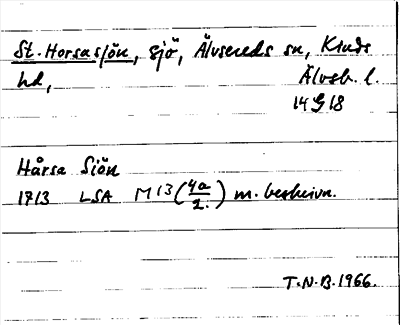 St. Horsasjön, sjö, Älvsereds sn, Kinds
hd, Älvsb. l.
14 G 18
Hårsa Siön
1713 LSA M 13 (4a/2.) m. beskrivn.
T.N.B. 1966.